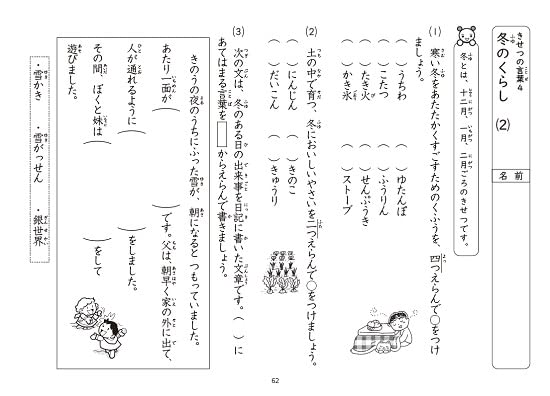 きせつの言葉4
冬のくらし (2)
名前
冬とは、十二月、一月、二月ごろのきせつです。
(1) 寒い冬をあたたかくすごすためのくふうを、四つえらんで○をつけ
ましょう。
( ) うちわ ( ) ゆたんぽ
( ) こたつ ( ) ふうりん
( ) たき火 ( ) せんぷうき
( ) かき氷 ( ) ストーブ
(2) 土の中で育つ、冬においしいやさいを二つえらんで○をつけましょう。
( ) にんじん ( ) きのこ
( ) だいこん ( ) きゅうり
(3) 次の文は、冬のある日の出来事を日記に書いた文章です。( )に
あてはまる言葉を□からえらんで書きましょう。
きのうの夜のうちにふった雪が、朝になるとつもっていました。
あたり一面が( )です。父は、朝早く家の外に出て、
人が通れるように( )をしました。
その間、ぼくと妹は( )をして
遊びました。
・雪かき ・雪がっせん ・銀世界
62